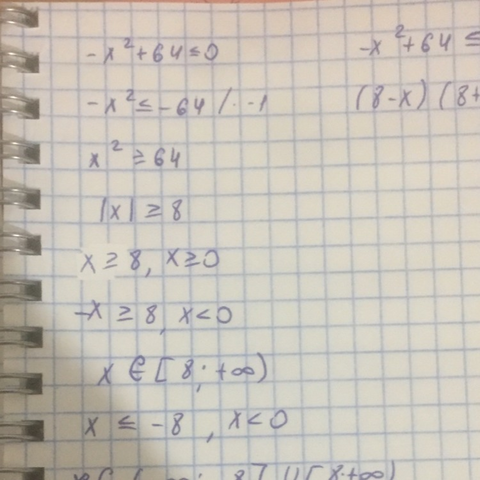 -x² + 64 ≤ 0
-x² ≤ -64 / · -1
x² ≥ 64
|x| ≥ 8
x ≥ 8, x ≥ 0
-x ≥ 8, x < 0
x ∈ [8; +∞)
x ≤ -8, x < 0
8] ∪ [8; +∞)
-x² + 64 ≤
(8-x) (8+